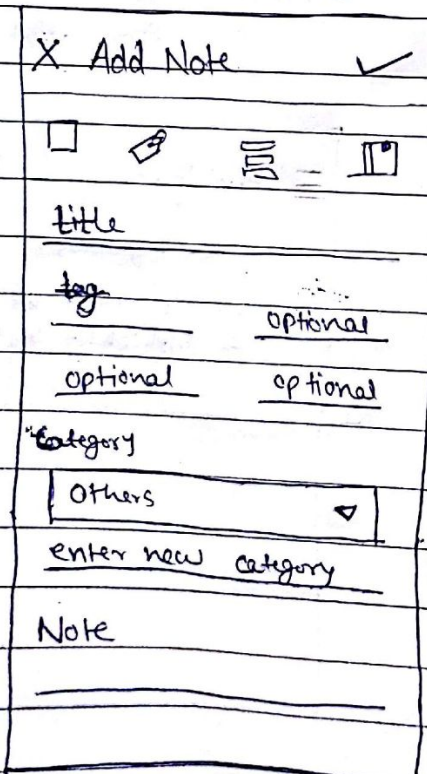 X Add Note ✓
title
tag
optional
optional optional
Category
Others
enter new category
Note